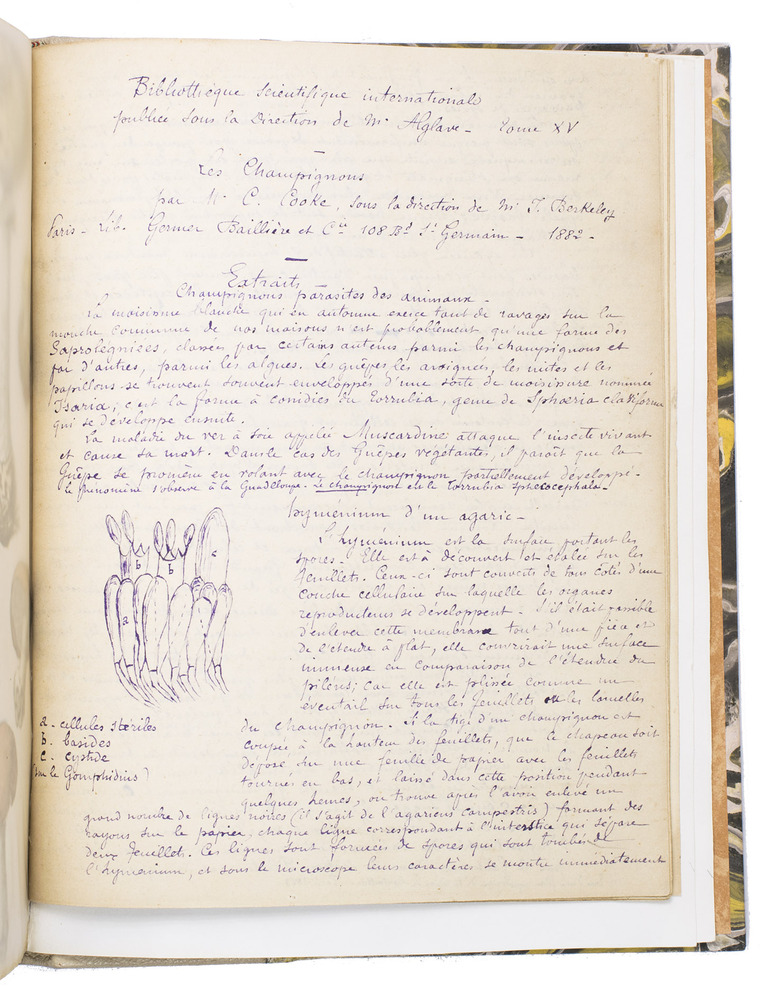 Bibliothèque scientifique internationale
publiée sous la Direction de Mr Alglave - Tome XV
Les Champignons
par M. C. Cooke, sous la direction de M. J. Berkeley
Paris - Lib. Germer Baillière et Cie 108 Bd St Germain - 1882 -
Extraits
Champignons parasites des animaux -
La moisissure blanche qui en automne exerce tant de ravages sur la
mouche commune de nos maisons n'est probablement qu'une forme des
Saprolégniées, classées par certains auteurs parmi les champignons et
par d'autres, parmi les algues. Les guêpes les araignées, les mites et les
papillons se trouvent souvent enveloppés d'une sorte de moisissure nommée
Isaria; c'est la forme à conidies du Torrubia, genre de Sphaeria claviforme
qui se développe ensuite.
La maladie du ver à soie appelée Muscardine attaque l'insecte vivant
et cause sa mort. Dans le cas des Guêpes végétantes, il paraît que la
Guêpe se promène en volant avec le champignon partiellement développé.
le phénomène s'observe à la Guadeloupe. Le champignon est le Torrubia Sphecocephala -
hymenium d'un agaric -
L'hyménium est la surface portant les
spores. Elle est à découvert et étalée sur les
feuillets. Ceux-ci sont couverts de tous côtés d'une
couche cellulaire sur laquelle les organes
reproducteurs se développent - S'il était possible
d'enlever cette membrane tout d'une pièce et
de l'étendre à plat, elle couvrirait une surface
immense en comparaison de l'étendue du
pileus; car elle est plissée comme un
éventail sur tous les feuillets ou les lamelles
du champignon. Si la tige d'un champignon est
coupée à la hauteur des feuillets, que le chapeau soit
déposé sur une feuille de papier avec les feuillets
tournés en bas, et laissé dans cette position pendant
quelques heures, on trouve après l'avoir enlevé un
grand nombre de lignes noires (il s'agit de l'agaricus campestris) formant des
rayons sur le papier, chaque ligne correspondant à l'interstice qui sépare
deux feuillets. Ces lignes sont formées de spores qui sont tombées de
l'hymenium, et sous le microscope leurs caractères se montre immédiatement
b
b
c
a
a - cellules stériles
b - basides
c - cystide
(sur le Gomphidius)